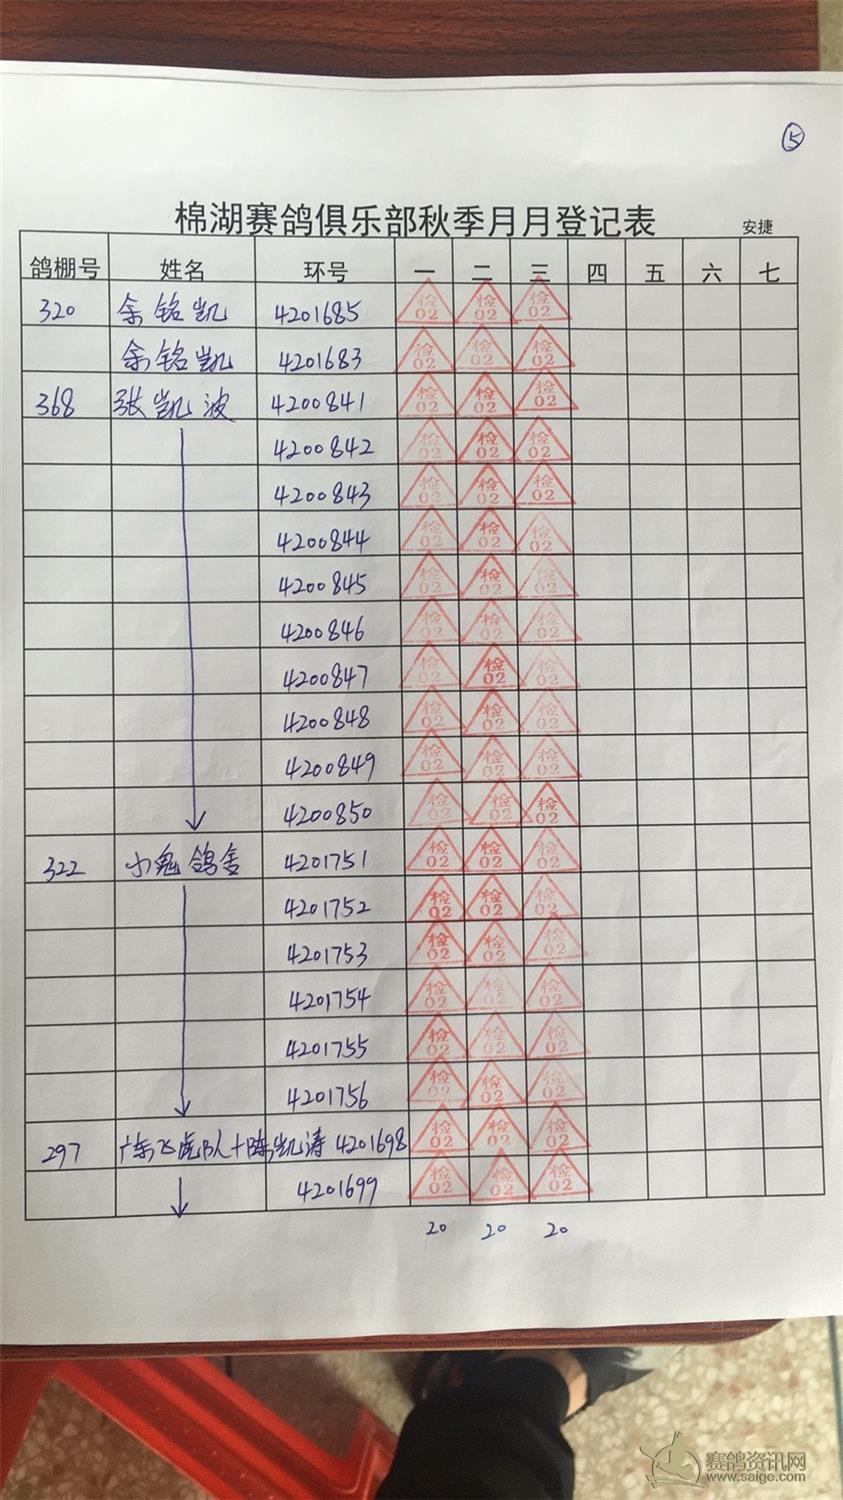 ⑤
棉湖赛鸽俱乐部秋季月月登记表
安捷
鸽棚号 姓名 环号 一 二 三 四 五 六 七
320 余铭凯 4201685 检02 检02 检02
余铭凯 4201683 检02 检02 检02
368 张凯波 4200841 检02 检02 检02
4200842 检02 检02 检02
4200843 检02 检02 检02
4200844 检02 检02 检02
4200845 检02 检02 检02
4200846 检02 检02 检02
4200847 检02 检02 检02
4200848 检02 检02 检02
4200849 检02 检02 检02
4200850 检02 检02 检02
322 小鬼鸽舍 4201751 检02 检02 检02
4201752 检02 检02 检02
4201753 检02 检02 检02
4201754 检02 检02 检02
4201755 检02 检02 检02
4201756 检02 检02 检02
297 广东飞虎队+陈凯涛 4201698 检02 检02 检02
4201699 检02 检02 检02
20 20 20
赛鸽资讯网
www.saige.com